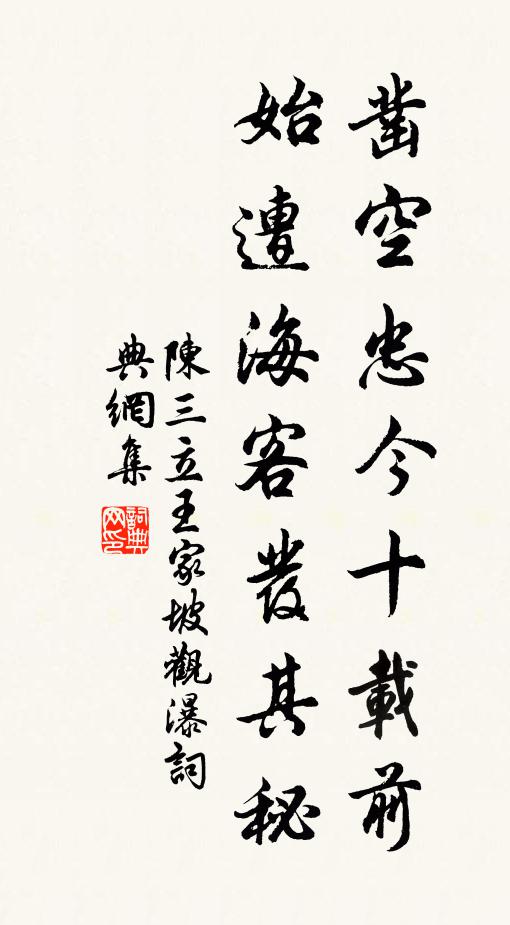 鑿空忠今十載前
始遭海客發其秘
陳三立王家坡觀瀑詞
典網集
詞典網印